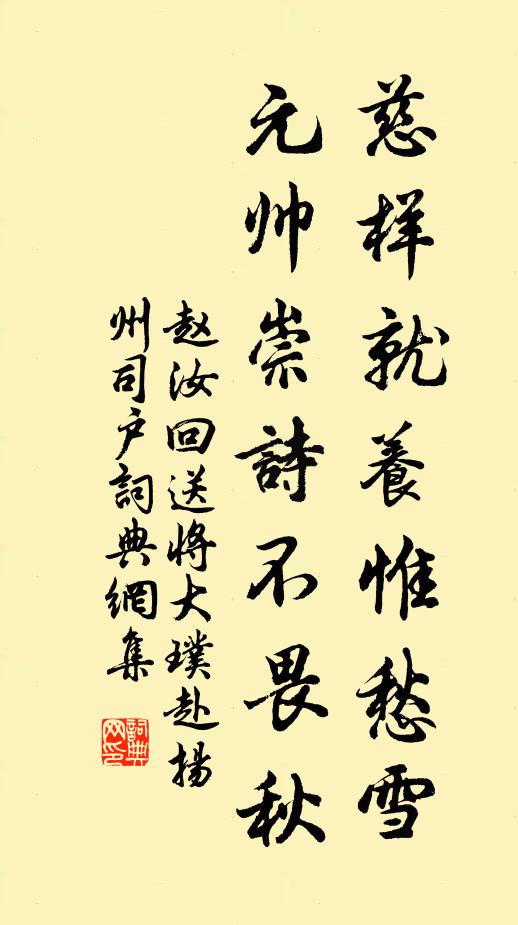 慈样就養惟愁雪
元帅崇詩不畏秋
赵汝回送將大璞赴揚
州司户詞典網集
詞典网印